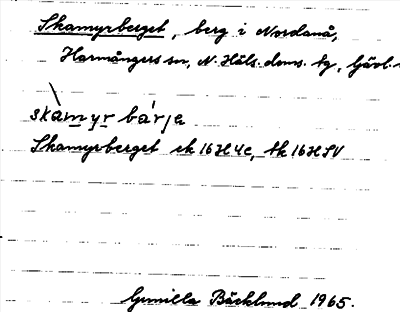 Skamyrberget, berg i Nordanå,
Harmångers sn, N. Häls. doms. tg, Gävl.
skàmyr bárja
Skamyrberget ek 16H4c, tk 16HSV
Gunilla Bäcklund 1965.